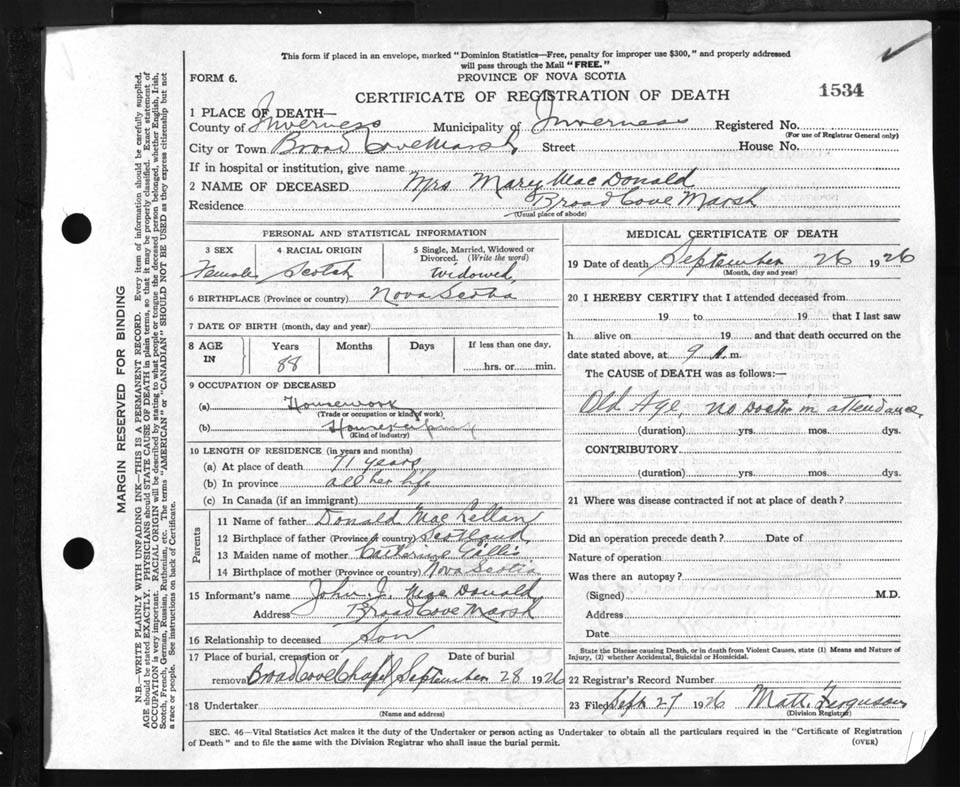 This form if placed in an envelope, marked "Dominion Statistics—Free, penalty for improper use $300," and properly addressed
will pass through the Mail "FREE."
FORM 6.
PROVINCE OF NOVA SCOTIA
CERTIFICATE OF REGISTRATION OF DEATH
1534
1 PLACE OF DEATH—
County of Inverness Municipality of Inverness Registered No.
(For use of Registrar General only)
City or Town Broad Cove Marsh Street House No.
If in hospital or institution, give name
2 NAME OF DECEASED Mrs Mary MacDonald
Residence Broad Cove Marsh
(Usual place of abode)
PERSONAL AND STATISTICAL INFORMATION
3 SEX 4 RACIAL ORIGIN 5 Single, Married, Widowed or
Divorced. (Write the word)
Female Scotch widowed
6 BIRTHPLACE (Province or country) Nova Scotia
7 DATE OF BIRTH (month, day and year)
8 AGE IN Years Months Days If less than one day,
88 hrs. or min.
9 OCCUPATION OF DECEASED
(a) Housework
(Trade or occupation or kind of work)
(b) Housekeeping
(Kind of industry)
10 LENGTH OF RESIDENCE (in years and months)
(a) At place of death 71 years
(b) In province all her life
(c) In Canada (if an immigrant)
Parents
11 Name of father Donald MacLellan
12 Birthplace of father (Province or country) Scotland
13 Maiden name of mother Catherine Gillis
14 Birthplace of mother (Province or country) Nova Scotia
15 Informant's name John J. MacDonald
Address Broad Cove Marsh
16 Relationship to deceased Son
17 Place of burial, cremation or Date of burial
removal Broad Cove Chapel September 28 1926
18 Undertaker
(Name and address)
MEDICAL CERTIFICATE OF DEATH
19 Date of death September 26 1926
(Month, day and year)
20 I HEREBY CERTIFY that I attended deceased from
19 to 19 that I last saw
h alive on 19 and that death occurred on the
date stated above, at 9 A. m.
The CAUSE of DEATH was as follows:—
Old Age, no Doctor in attendance
(duration) yrs. mos. dys.
CONTRIBUTORY
(duration) yrs. mos. dys.
21 Where was disease contracted if not at place of death?
Did an operation precede death? Date of
Nature of operation
Was there an autopsy?
(Signed) M.D.
Address
Date
State the Disease causing Death, or in death from Violent Causes, state (1) Means and Nature of
Injury, (2) whether Accidental, Suicidal or Homicidal.
22 Registrar's Record Number
23 Filed Sept 27 1926 Matt. Ferguson
(Division Registrar)
SEC. 46—Vital Statistics Act makes it the duty of the Undertaker or person acting as Undertaker to obtain all the particulars required in the "Certificate of Registration
of Death" and to file the same with the Division Registrar who shall issue the burial permit.
(OVER)
MARGIN RESERVED FOR BINDING
N.B.—WRITE PLAINLY WITH UNFADING INK—THIS IS A PERMANENT RECORD. Every item of information should be carefully supplied.
AGE should be stated EXACTLY. PHYSICIANS should STATE CAUSE OF DEATH in plain terms, so that it may be properly classified. Exact statement of
OCCUPATION is very important. RACIAL ORIGIN will be described by stating to what people or tongue the deceased person belonged, whether English, Irish,
Scotch, French, German, Russian, Ruthenian, etc. The terms "AMERICAN" or "CANADIAN" SHOULD NOT BE USED as they express citizenship but not
a race or people. See instructions on back of Certificate.